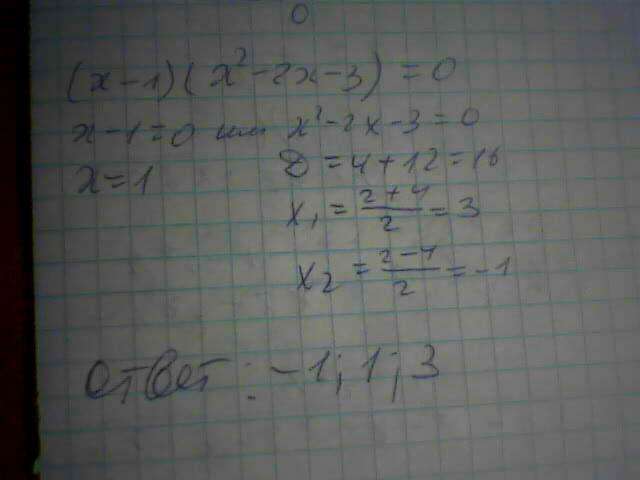 0
(x-1)(x²-2x-3)=0
x-1=0 или x²-2x-3=0
x=1 D=4+12=16
x₁=(2+4)/2=3
x₂=(2-4)/2=-1
Ответ: -1; 1; 3